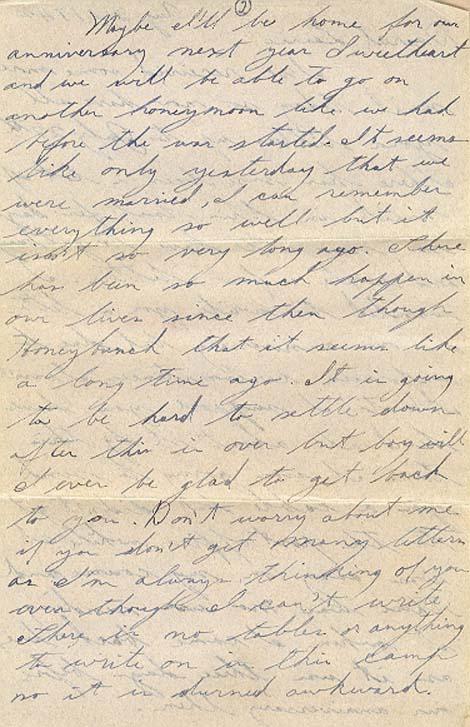 ②
Maybe I'll be home for our
anniversary next year Sweetheart
and we will be able to go on
another honeymoon like we had
before the war started. It seems
like only yesterday that we
were married, I can remember
everything so well but it
isn't so very long ago. There
has been so much happen in
our lives since then though
Honeybunch that it seems like
a long time ago. It is going
to be hard to settle down
after this is over but boy will
I ever be glad to get back
to you. Don't worry about me
if you don't get many letters
as I'm always thinking of you
even though I can't write,
There is no tables or anything
to write on in this camp
so it is durned awkward.